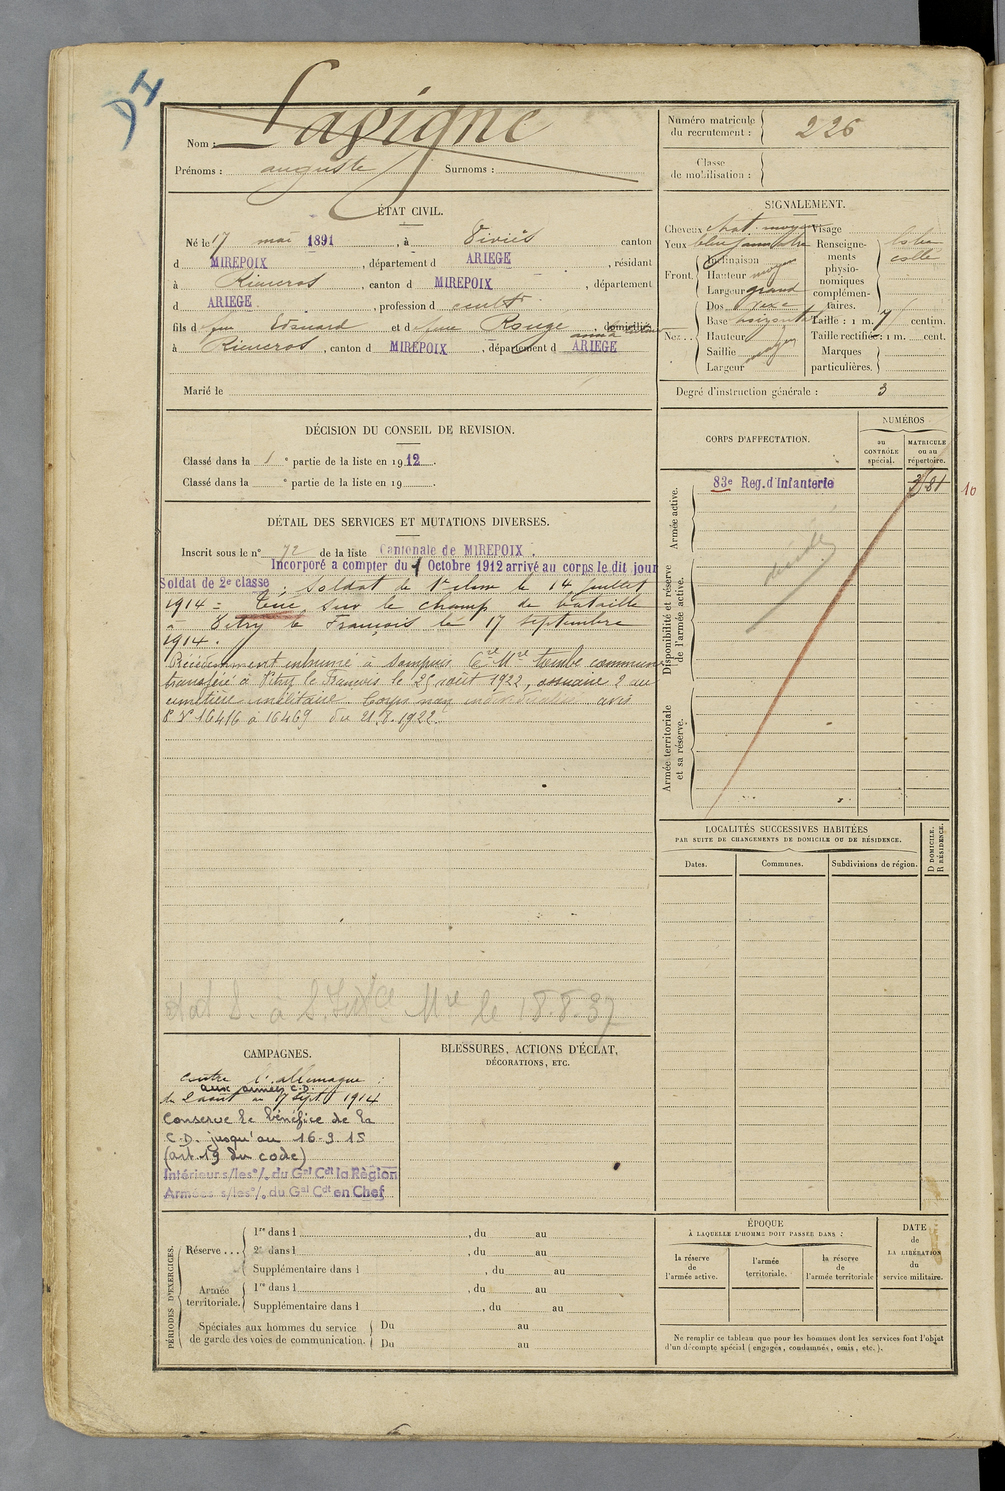 Nom : Lapigne
Prénoms : auguste Surnoms :
Numéro matricule du recrutement : 226
Classe de mobilisation :
ÉTAT CIVIL.
Né le 17 mai 1891, à Viviès canton
d MIREPOIX, département d ARIEGE, résidant
à Rieucros, canton d MIREPOIX, département
d ARIEGE, profession de cult
fils d feu Edouard et d Rouge, domiciliés
à Rieucros, canton d MIREPOIX, département d ARIEGE
Marié le
SIGNALEMENT.
Cheveux chat. moyen
Yeux bleu
Front.
Inclinaison
Hauteur moyen
Largeur grand
Dos
Nez..
Base
Hauteur
Saillie moyen
Largeur
Visage
Renseignements physionomiques complémentaires.
Taille : 1 m. centim.
Taille rectifiée : 1 m. cent.
Marques particulières.
Degré d'instruction générale : 3
DÉCISION DU CONSEIL DE REVISION.
Classé dans la 1e partie de la liste en 1912.
Classé dans la e partie de la liste en 19 .
CORPS D'AFFECTATION.
NUMÉROS
au CONTRÔLE spécial.
MATRICULE ou au répertoire.
Armée active.
83e Reg. d'Infanterie
10
Disponibilité et réserve de l'armée active.
décédé
Armée territoriale et sa réserve.
DÉTAIL DES SERVICES ET MUTATIONS DIVERSES.
Inscrit sous le n° 72 de la liste Cantonale de MIREPOIX.
Incorporé a compter du 1 Octobre 1912 arrivé au corps le dit jour
Soldat de 2e classe ; Soldat de 1e classe le 14 juillet
1914 = Tué sur le champ de bataille
à Vitry le François le 17 septembre
1914.
Précédemment inhumé à Sompuis Cne Mne tombe commune
transféré à Vitry le François le 25 août 1922, ossuaire 2 au
cimetière militaire. Corps non individualisé avis
P.V 16416 à 16469 du 21.8.1922
à S. le 18.8.37
LOCALITÉS SUCCESSIVES HABITÉES
PAR SUITE DE CHANGEMENTS DE DOMICILE OU DE RÉSIDENCE.
Dates.
Communes.
Subdivisions de région.
D DOMICILE.
R RÉSIDENCE.
CAMPAGNES.
Contre l'allemagne :
aux armées C.D.
du 2 août au 17 Septb 1914
Conserve le bénéfice de la
C.D. jusqu'au 16-9-15
(art. 19 du code)
Intérieur s/les o/. du Gal Cdt la Région
Armées s/les o/. du Gal Cdt en Chef
BLESSURES, ACTIONS D'ÉCLAT,
DÉCORATIONS, ETC.
PÉRIODES D'EXERCICES.
Réserve...
1re dans l , du au
2e dans l , du au
Supplémentaire dans l , du au
Armée territoriale.
1re dans l , du au
Supplémentaire dans l , du au
Spéciales aux hommes du service
de garde des voies de communication.
Du au
Du au
ÉPOQUE
À LAQUELLE L'HOMME DOIT PASSER DANS :
la réserve de l'armée active.
l'armée territoriale.
la réserve de l'armée territoriale
DATE de LA LIBÉRATION du service militaire.
Ne remplir ce tableau que pour les hommes dont les services font l'objet
d'un décompte spécial (engagés, condamnés, omis, etc.).